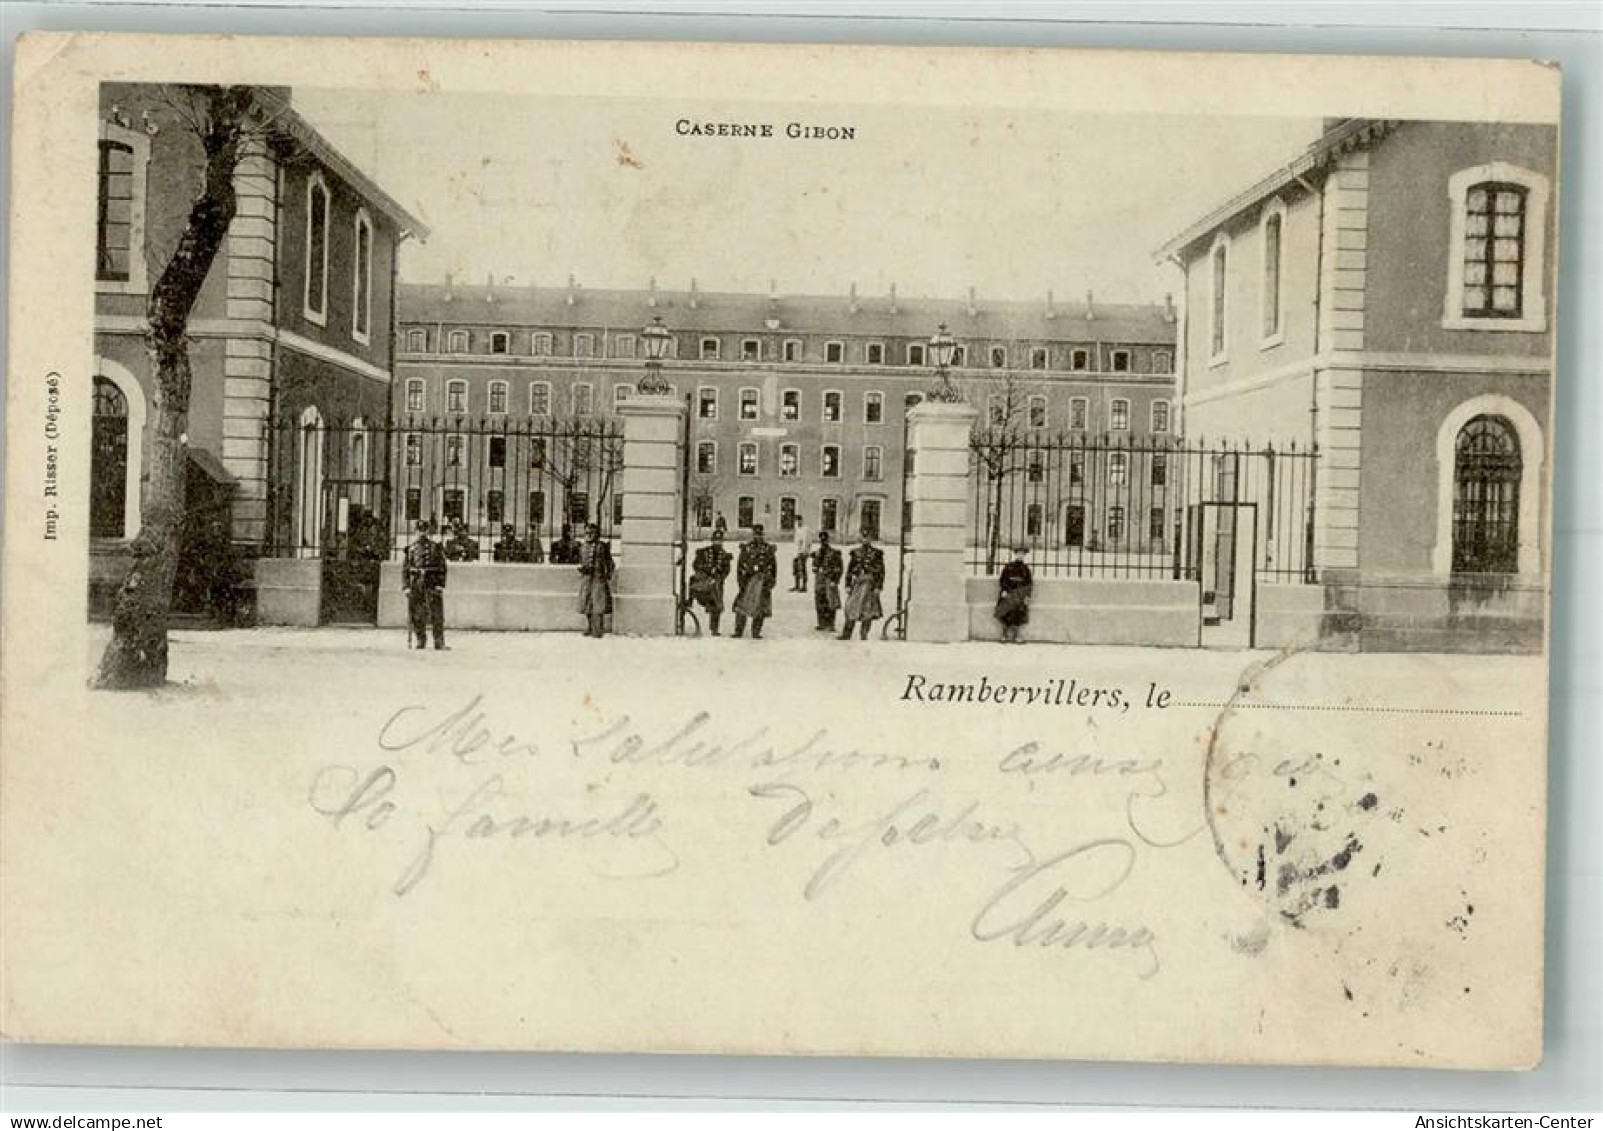 CASERNE GIBON
Imp. Risser (Déposé)
Rambervillers, le
Mes salutations ainsi que
La famille
oldthing.de
Ansichtskarten-Center